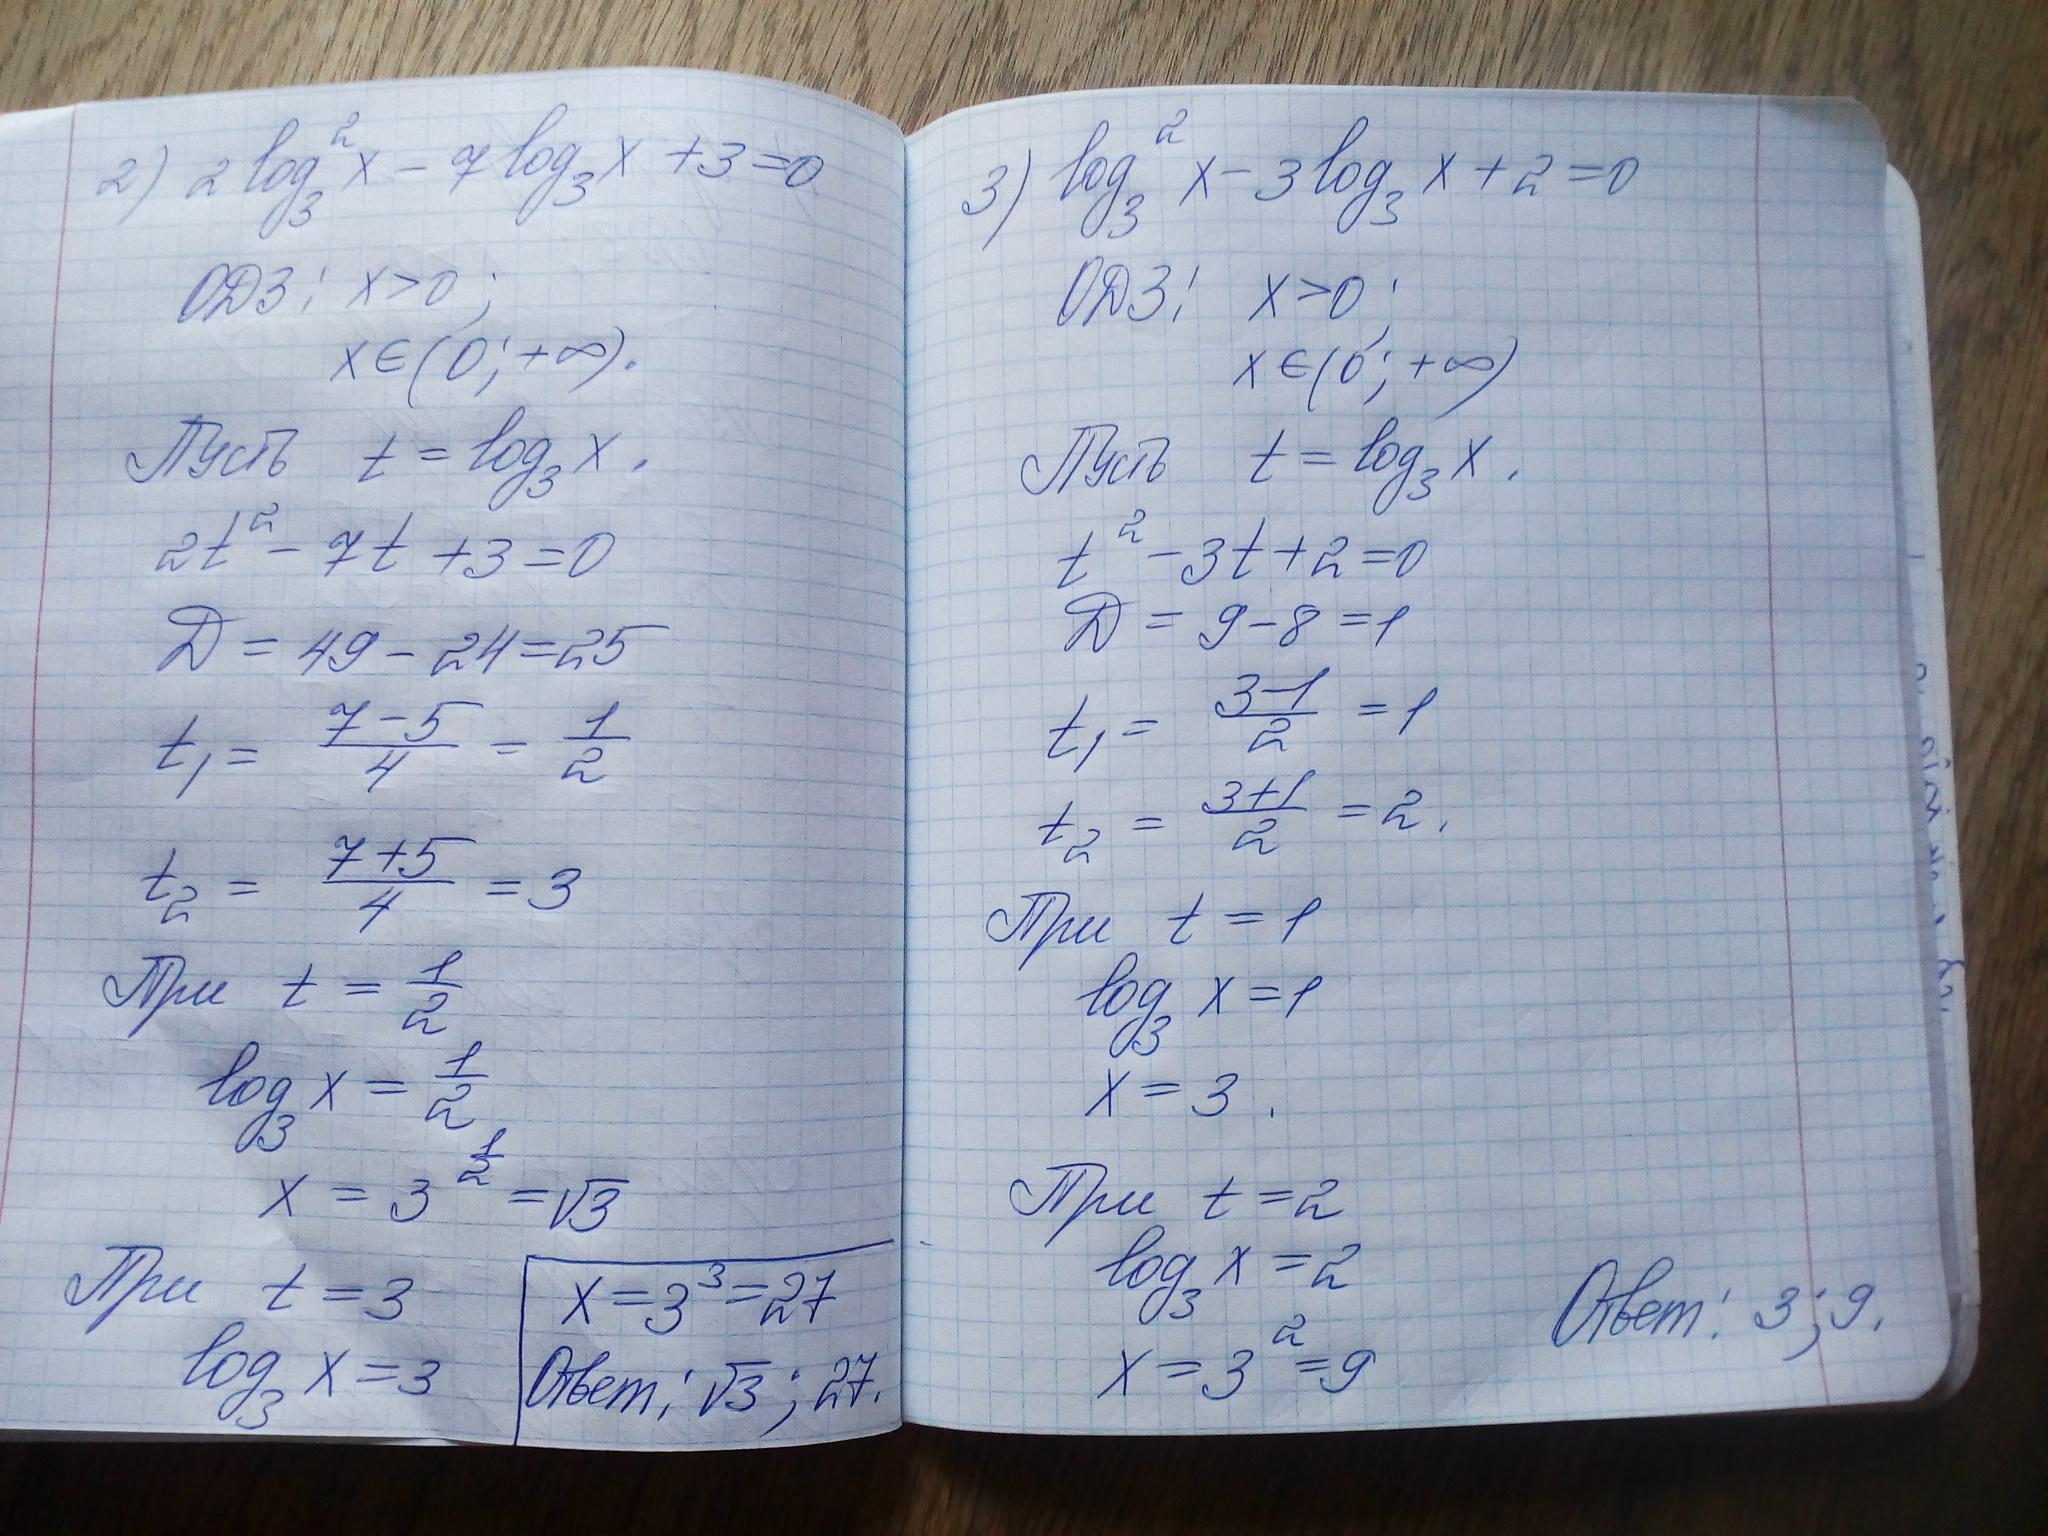 2) 2 log₃² x − 7 log₃ x + 3 = 0
ОДЗ: x > 0;
x ∈ (0; +∞).
Пусть t = log₃ x.
2t² − 7t + 3 = 0
Д = 49 − 24 = 25
t₁ = (7 − 5)/4 = 1/2
t₂ = (7 + 5)/4 = 3
При t = 1/2
log₃ x = 1/2
x = 3^(1/2) = √3
При t = 3
log₃ x = 3
x = 3³ = 27
Ответ: √3; 27.
3) log₃² x − 3 log₃ x + 2 = 0
ОДЗ: x > 0;
x ∈ (0; +∞)
Пусть t = log₃ x.
t² − 3t + 2 = 0
Д = 9 − 8 = 1
t₁ = (3 − 1)/2 = 1
t₂ = (3 + 1)/2 = 2.
При t = 1
log₃ x = 1
x = 3.
При t = 2
log₃ x = 2
x = 3² = 9
Ответ: 3; 9.